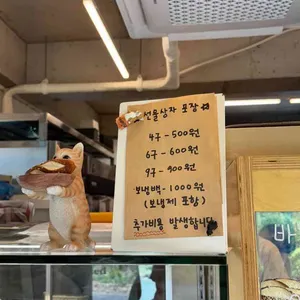 선물상자 포장
4구 - 500원
6구 - 600원
9구 - 900원
보냉백 - 1000원
(보냉제 포함)
추가비용 발생합니다
바